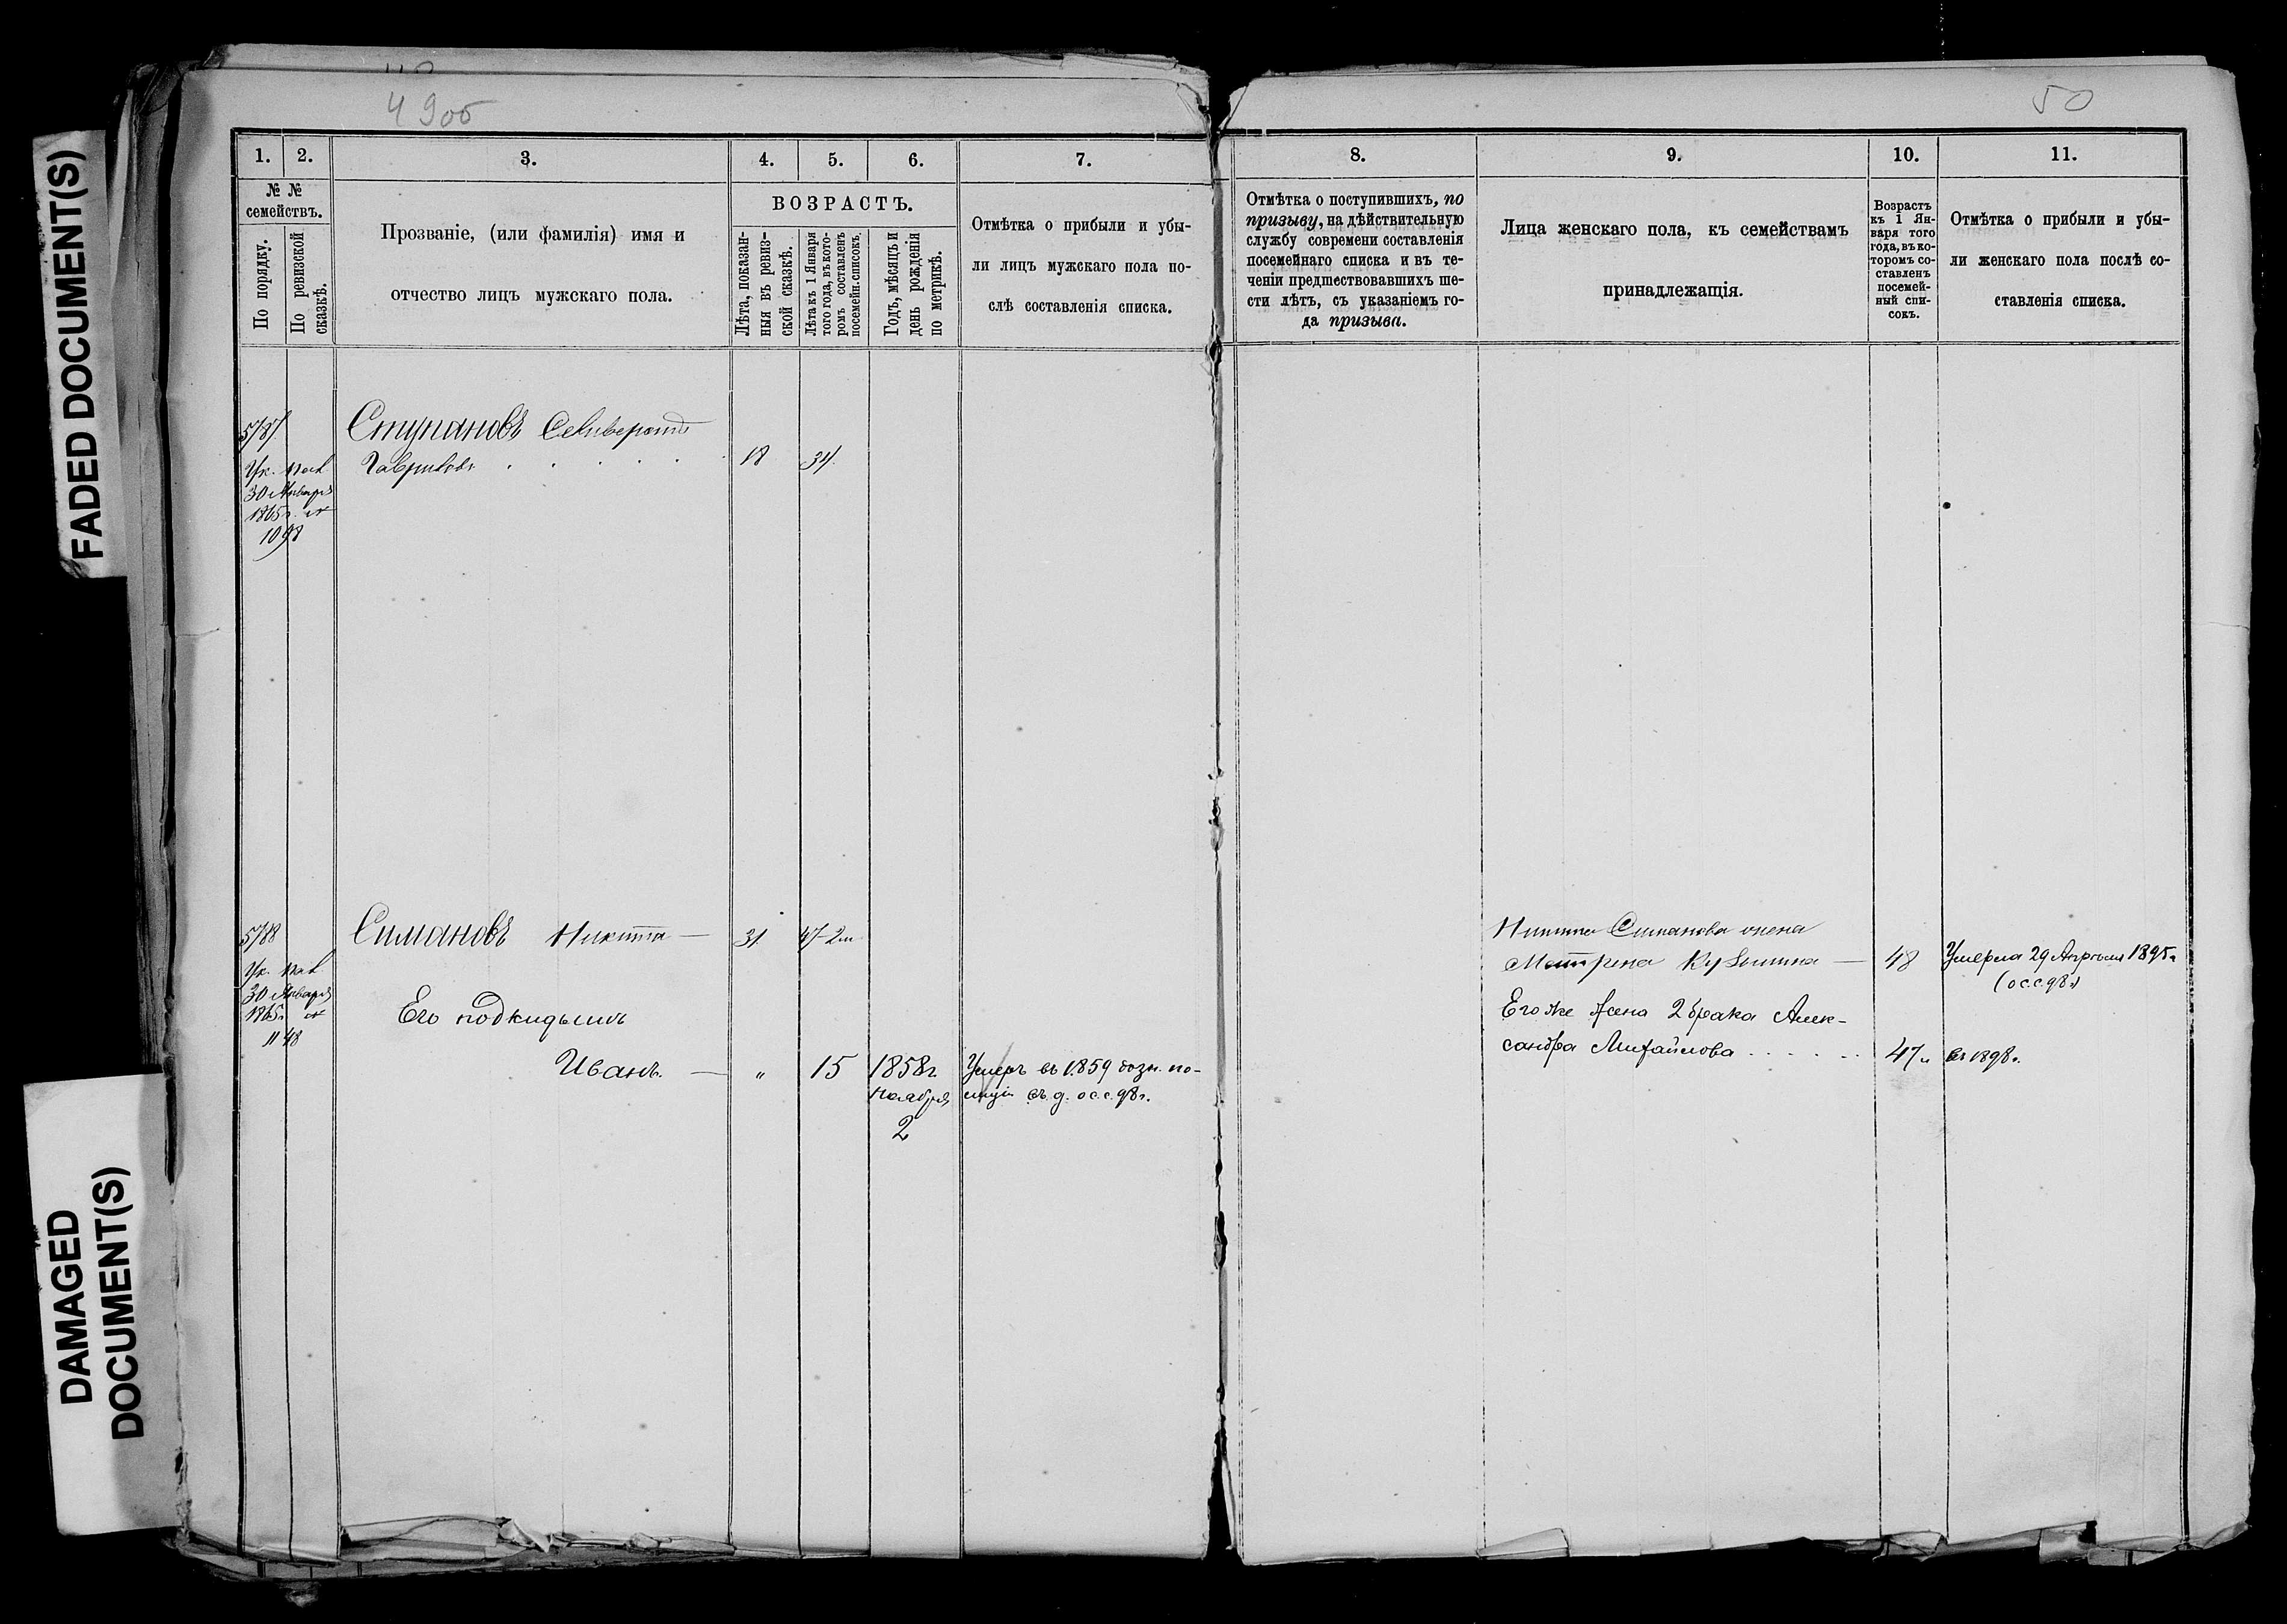 49об
50
FADED DOCUMENT(S)
DAMAGED
DOCUMENT(S)
1.
2.
3.
4.
5.
6.
7.
№ №
семействъ.
По порядку.
По ревизской
сказкѣ.
Прозваніе, (или фамилія) имя и
отчество лицъ мужскаго пола.
ВОЗРАСТЪ.
Лѣта, показан-
ныя въ ревиз-
ской сказкѣ.
Лѣта къ 1 Января
того года, въ кото-
ромъ составленъ
посемейн. списокъ.
Годъ, мѣсяцъ и
день рожденія
по метрикѣ.
Отмѣтка о прибыли и убы-
ли лицъ мужскаго пола по-
слѣ составленія списка.
8.
9.
10.
11.
Отмѣтка о поступившихъ, по
призыву, на дѣйствительную
службу современи составленія
посемейнаго списка и въ те-
ченіи предшествовавшихъ ше-
сти лѣтъ, съ указаніемъ го-
да призыва.
Лица женскаго пола, къ семействамъ
принадлежащія.
Возрастъ
къ 1 Ян-
варя того
года, въ ко-
торомъ со-
ставленъ
посемей-
ный спи-
сокъ.
Отмѣтка о прибыли и убы-
ли женскаго пола послѣ со-
ставленія списка.
5787
Ступановъ
Гавриловъ 18 34
Ук.
30 Января
1865г. №
1098
5788
Симановъ Никита 31 47
Ук.
30 Января
1865г. №
1148
Его подкидышъ
Иванъ. " 15 1858г
Ноября
2
Умеръ въ 1859 дозн. по-
лиціи съ д. о с.с. 98г.
Никиты Симанова жена
Матрена 48 Умерла 29 Апрѣля 1895г
(о с.с. 98г)
Его же жена 2 брака Алек-
сандра Михайлова 47 въ 1898г.